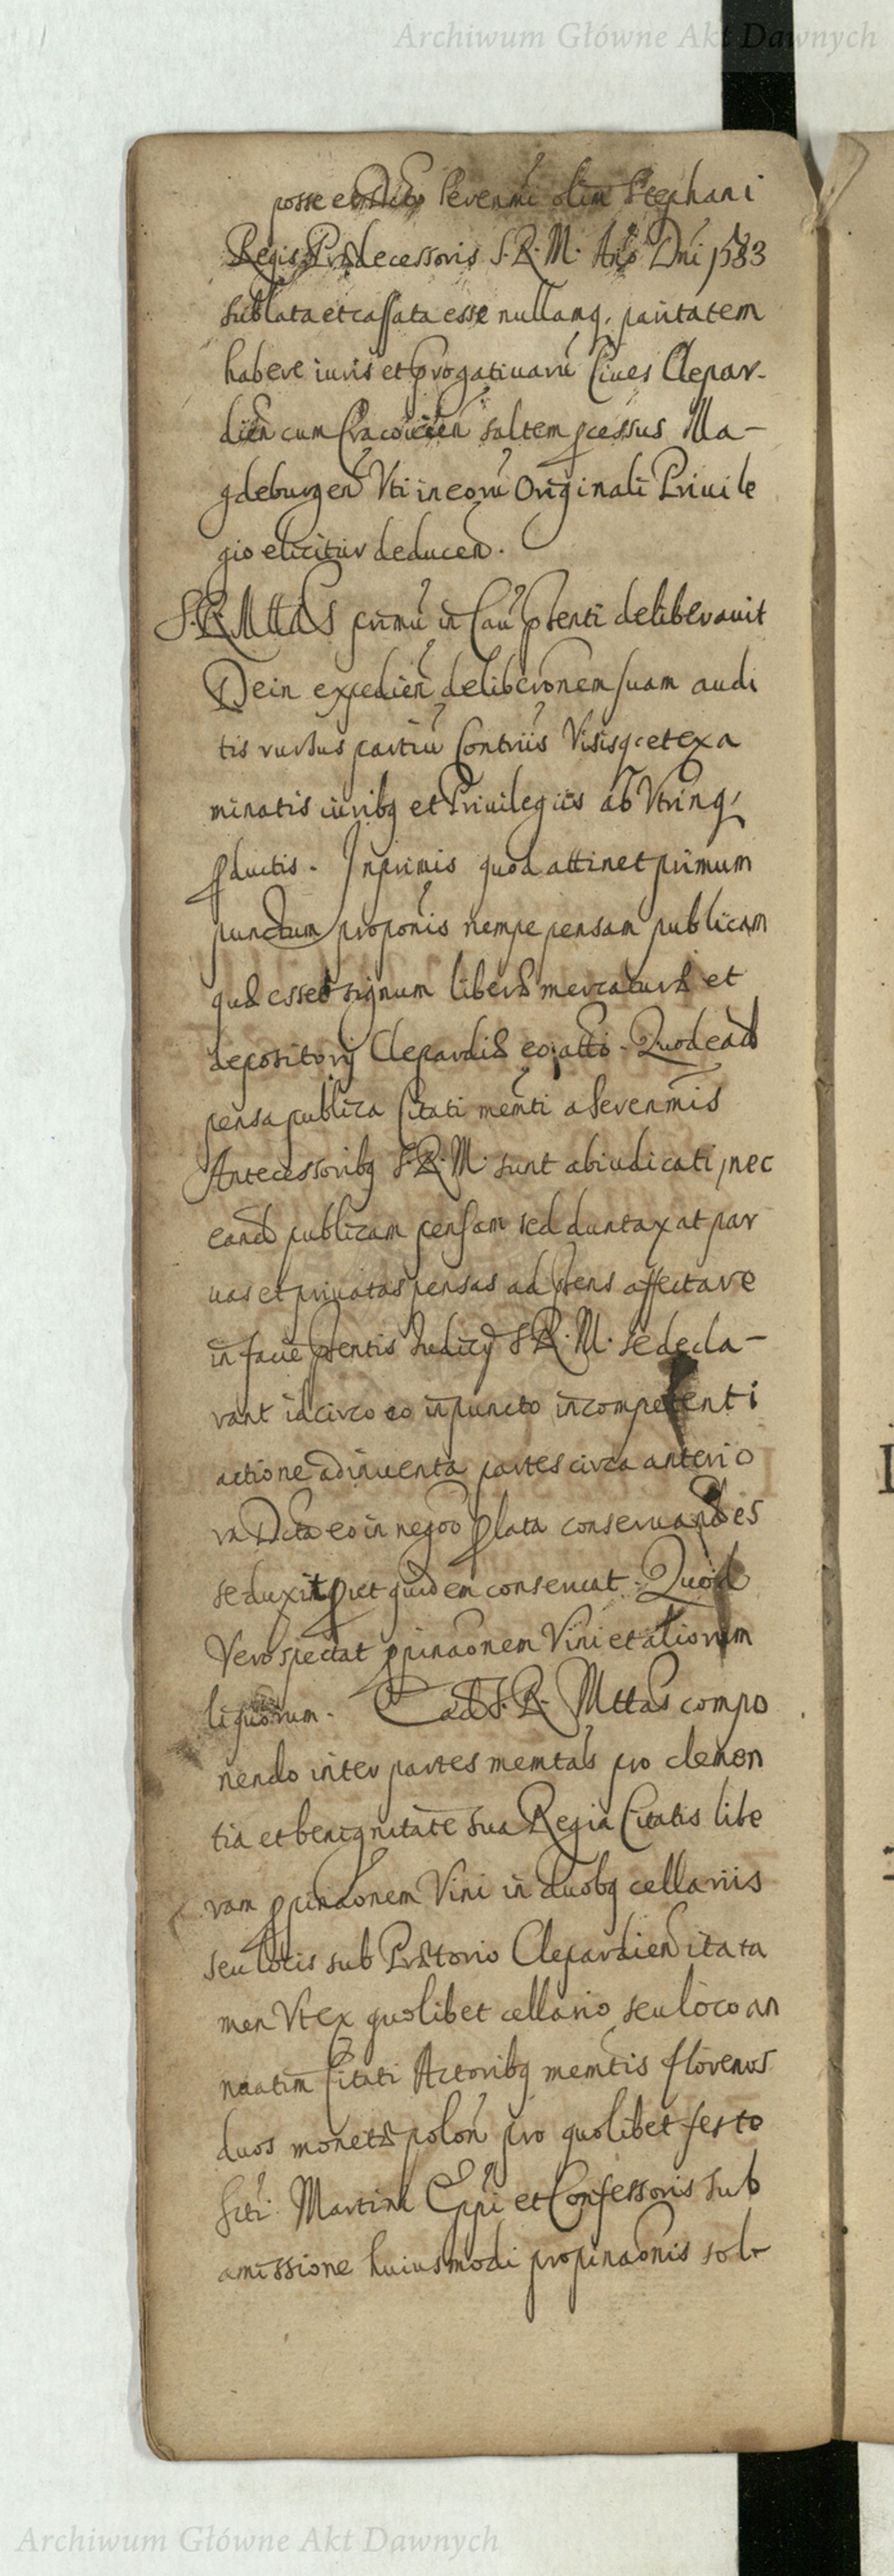 Archiwum Główne Akt Dawnych
posse et Dcto Serenmi olim Stephani
Regis Prædecessoris S. R. M. Año Dni 1583
sublata et cassata esse nullamq. paritatem
habere iuris et progativaru Ciues Clepar-
dien cum Cracouien saltem pcessus Ma-
gdeburgen Vti in eoru Originali Priuile
gio elicitur deducen.
S. R. Mttas primu in Cau pnti deliberauit
Dein expedien deliberonem suam audi
tis rursus partiu Controiis Visisq et exa
minatis iuribq et Priuilegiis ab Vtrinq
pductis. Inprimis quod attinet primum
punctum proponis nempe pensam publicam
quæ esset signum liberæ mercaturæ et
depositorij Clepardiæ
pensa publica Citati memti a Serenmis
Antecessoribq S. R. M. sunt abiudicati, nec
eand publicam pensam sed duntaxat par
uas et priuatas pensas ad pns affectare
in facie pntis Iudicij S. R. M. se decla-
rant idcirco eo in puncto incompetenti
actione adinuenta partes circa anterio
ra Dcta eo in negoo plata conseruandes
se duxit, put quidem conseruat. Quod
Vero spectat ppinaonem Vini et aliorum
liquorum. Ead S. R. Mttas compo
nendo inter partes memtas pro clemen
tia et benignitate sua Regia Citatis libe
ram ppinaonem Vini in duobq cellariis
seu locis sub Prætorio Clepardien ita ta
men Vt ex quolibet cellario seu loco an
nuatim Citati Actoribq memtis florenos
duos monetæ polon pro quolibet festo
Scti Martini Eppi et Confessoris sub
amissione huiusmodi propinaonis solv
Archiwum Główne Akt Dawnych